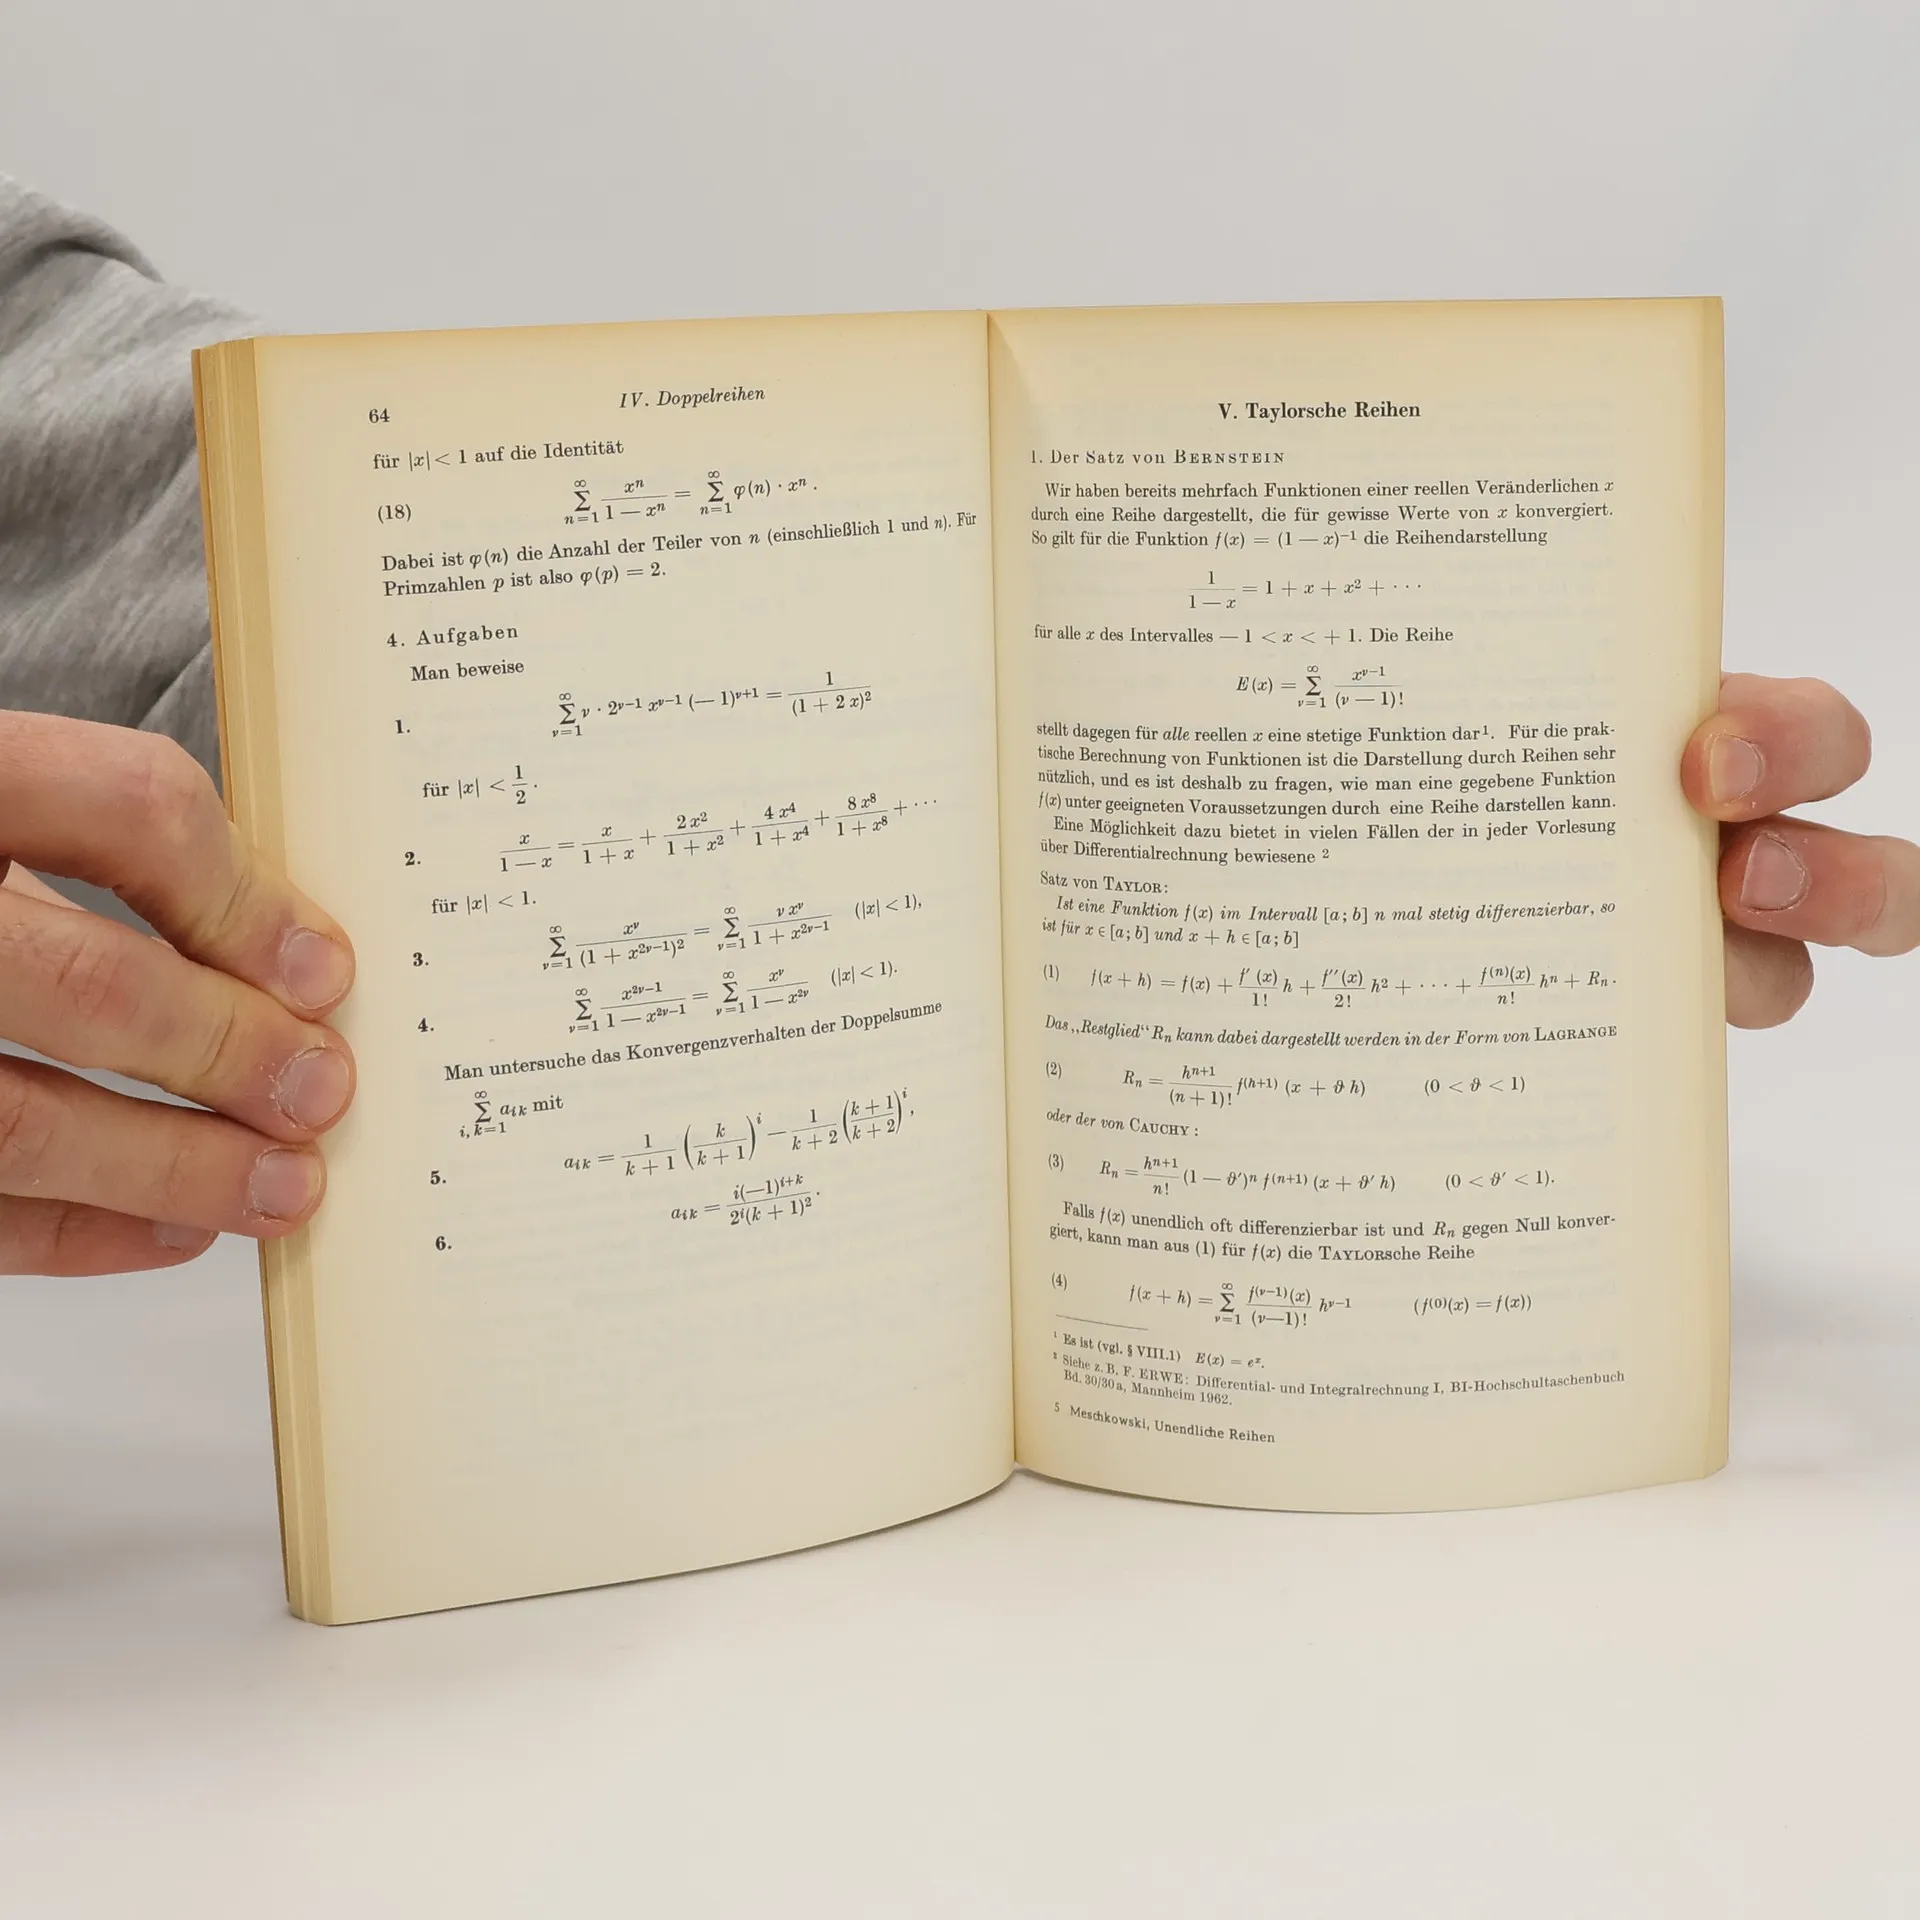 64
IV. Doppelreihen
für |x| < 1 auf die Identität
(18) \sum_{n=1}^{\infty} \frac{x^n}{1-x^n} = \sum_{n=1}^{\infty} φ(n) · x^n .
Dabei ist φ(n) die Anzahl der Teiler von n (einschließlich 1 und n). Für
Primzahlen p ist also φ(p) = 2.
4. Aufgaben
Man beweise
1. \sum_{ν=1}^{\infty} ν · 2^{ν-1} x^{ν-1} (-1)^{ν+1} = \frac{1}{(1+2x)^2}
für |x| < \frac{1}{2} .
2. \frac{x}{1-x} = \frac{x}{1+x} + \frac{2x^2}{1+x^2} + \frac{4x^4}{1+x^4} + \frac{8x^8}{1+x^8} + · · ·
für |x| < 1.
3. \sum_{ν=1}^{\infty} \frac{x^ν}{(1+x^{2ν-1})^2} = \sum_{ν=1}^{\infty} \frac{ν x^ν}{1+x^{2ν-1}} (|x| < 1),
4. \sum_{ν=1}^{\infty} \frac{x^{2ν-1}}{1-x^{2ν-1}} = \sum_{ν=1}^{\infty} \frac{x^ν}{1-x^{2ν}} (|x| < 1).
Man untersuche das Konvergenzverhalten der Doppelsumme
\sum_{i,k=1}^{\infty} a_{ik} mit
5. a_{ik} = \frac{1}{k+1} \left(\frac{k}{k+1}\right)^i - \frac{1}{k+2} \left(\frac{k+1}{k+2}\right)^i,
6. a_{ik} = \frac{i(-1)^{i+k}}{2^i(k+1)^2} .
V. Taylorsche Reihen
1. Der Satz von BERNSTEIN
Wir haben bereits mehrfach Funktionen einer reellen Veränderlichen x
durch eine Reihe dargestellt, die für gewisse Werte von x konvergiert.
So gilt für die Funktion f(x) = (1 - x)^{-1} die Reihendarstellung
\frac{1}{1-x} = 1 + x + x^2 + · · ·
für alle x des Intervalles - 1 < x < + 1. Die Reihe
E(x) = \sum_{ν=1}^{\infty} \frac{x^{ν-1}}{(ν-1)!}
stellt dagegen für alle reellen x eine stetige Funktion dar¹. Für die prak-
tische Berechnung von Funktionen ist die Darstellung durch Reihen sehr
nützlich, und es ist deshalb zu fragen, wie man eine gegebene Funktion
f(x) unter geeigneten Voraussetzungen durch eine Reihe darstellen kann.
Eine Möglichkeit dazu bietet in vielen Fällen der in jeder Vorlesung
über Differentialrechnung bewiesene ²
Satz von TAYLOR:
Ist eine Funktion f(x) im Intervall [a; b] n mal stetig differenzierbar, so
ist für x ∈ [a; b] und x + h ∈ [a; b]
(1) f(x + h) = f(x) + \frac{f'(x)}{1!} h + \frac{f''(x)}{2!} h^2 + · · · + \frac{f^{(n)}(x)}{n!} h^n + R_n .
Das „Restglied“ R_n kann dabei dargestellt werden in der Form von LAGRANGE
(2) R_n = \frac{h^{n+1}}{(n+1)!} f^{(h+1)} (x + ϑ h) (0 < ϑ < 1)
oder der von CAUCHY :
(3) R_n = \frac{h^{n+1}}{n!} (1 - ϑ')^n f^{(n+1)} (x + ϑ' h) (0 < ϑ' < 1).
Falls f(x) unendlich oft differenzierbar ist und R_n gegen Null konver-
giert, kann man aus (1) für f(x) die TAYLORsche Reihe
(4) f(x + h) = \sum_{ν=1}^{\infty} \frac{f^{(ν-1)}(x)}{(ν-1)!} h^{ν-1} (f^{(0)}(x) = f(x))
¹ Es ist (vgl. § VIII.1) E(x) = e^x.
² Siehe z. B. F. ERWE: Differential- und Integralrechnung I, BI-Hochschultaschenbuch
Bd. 30/30a, Mannheim 1962.
5 Meschkowski, Unendliche Reihen